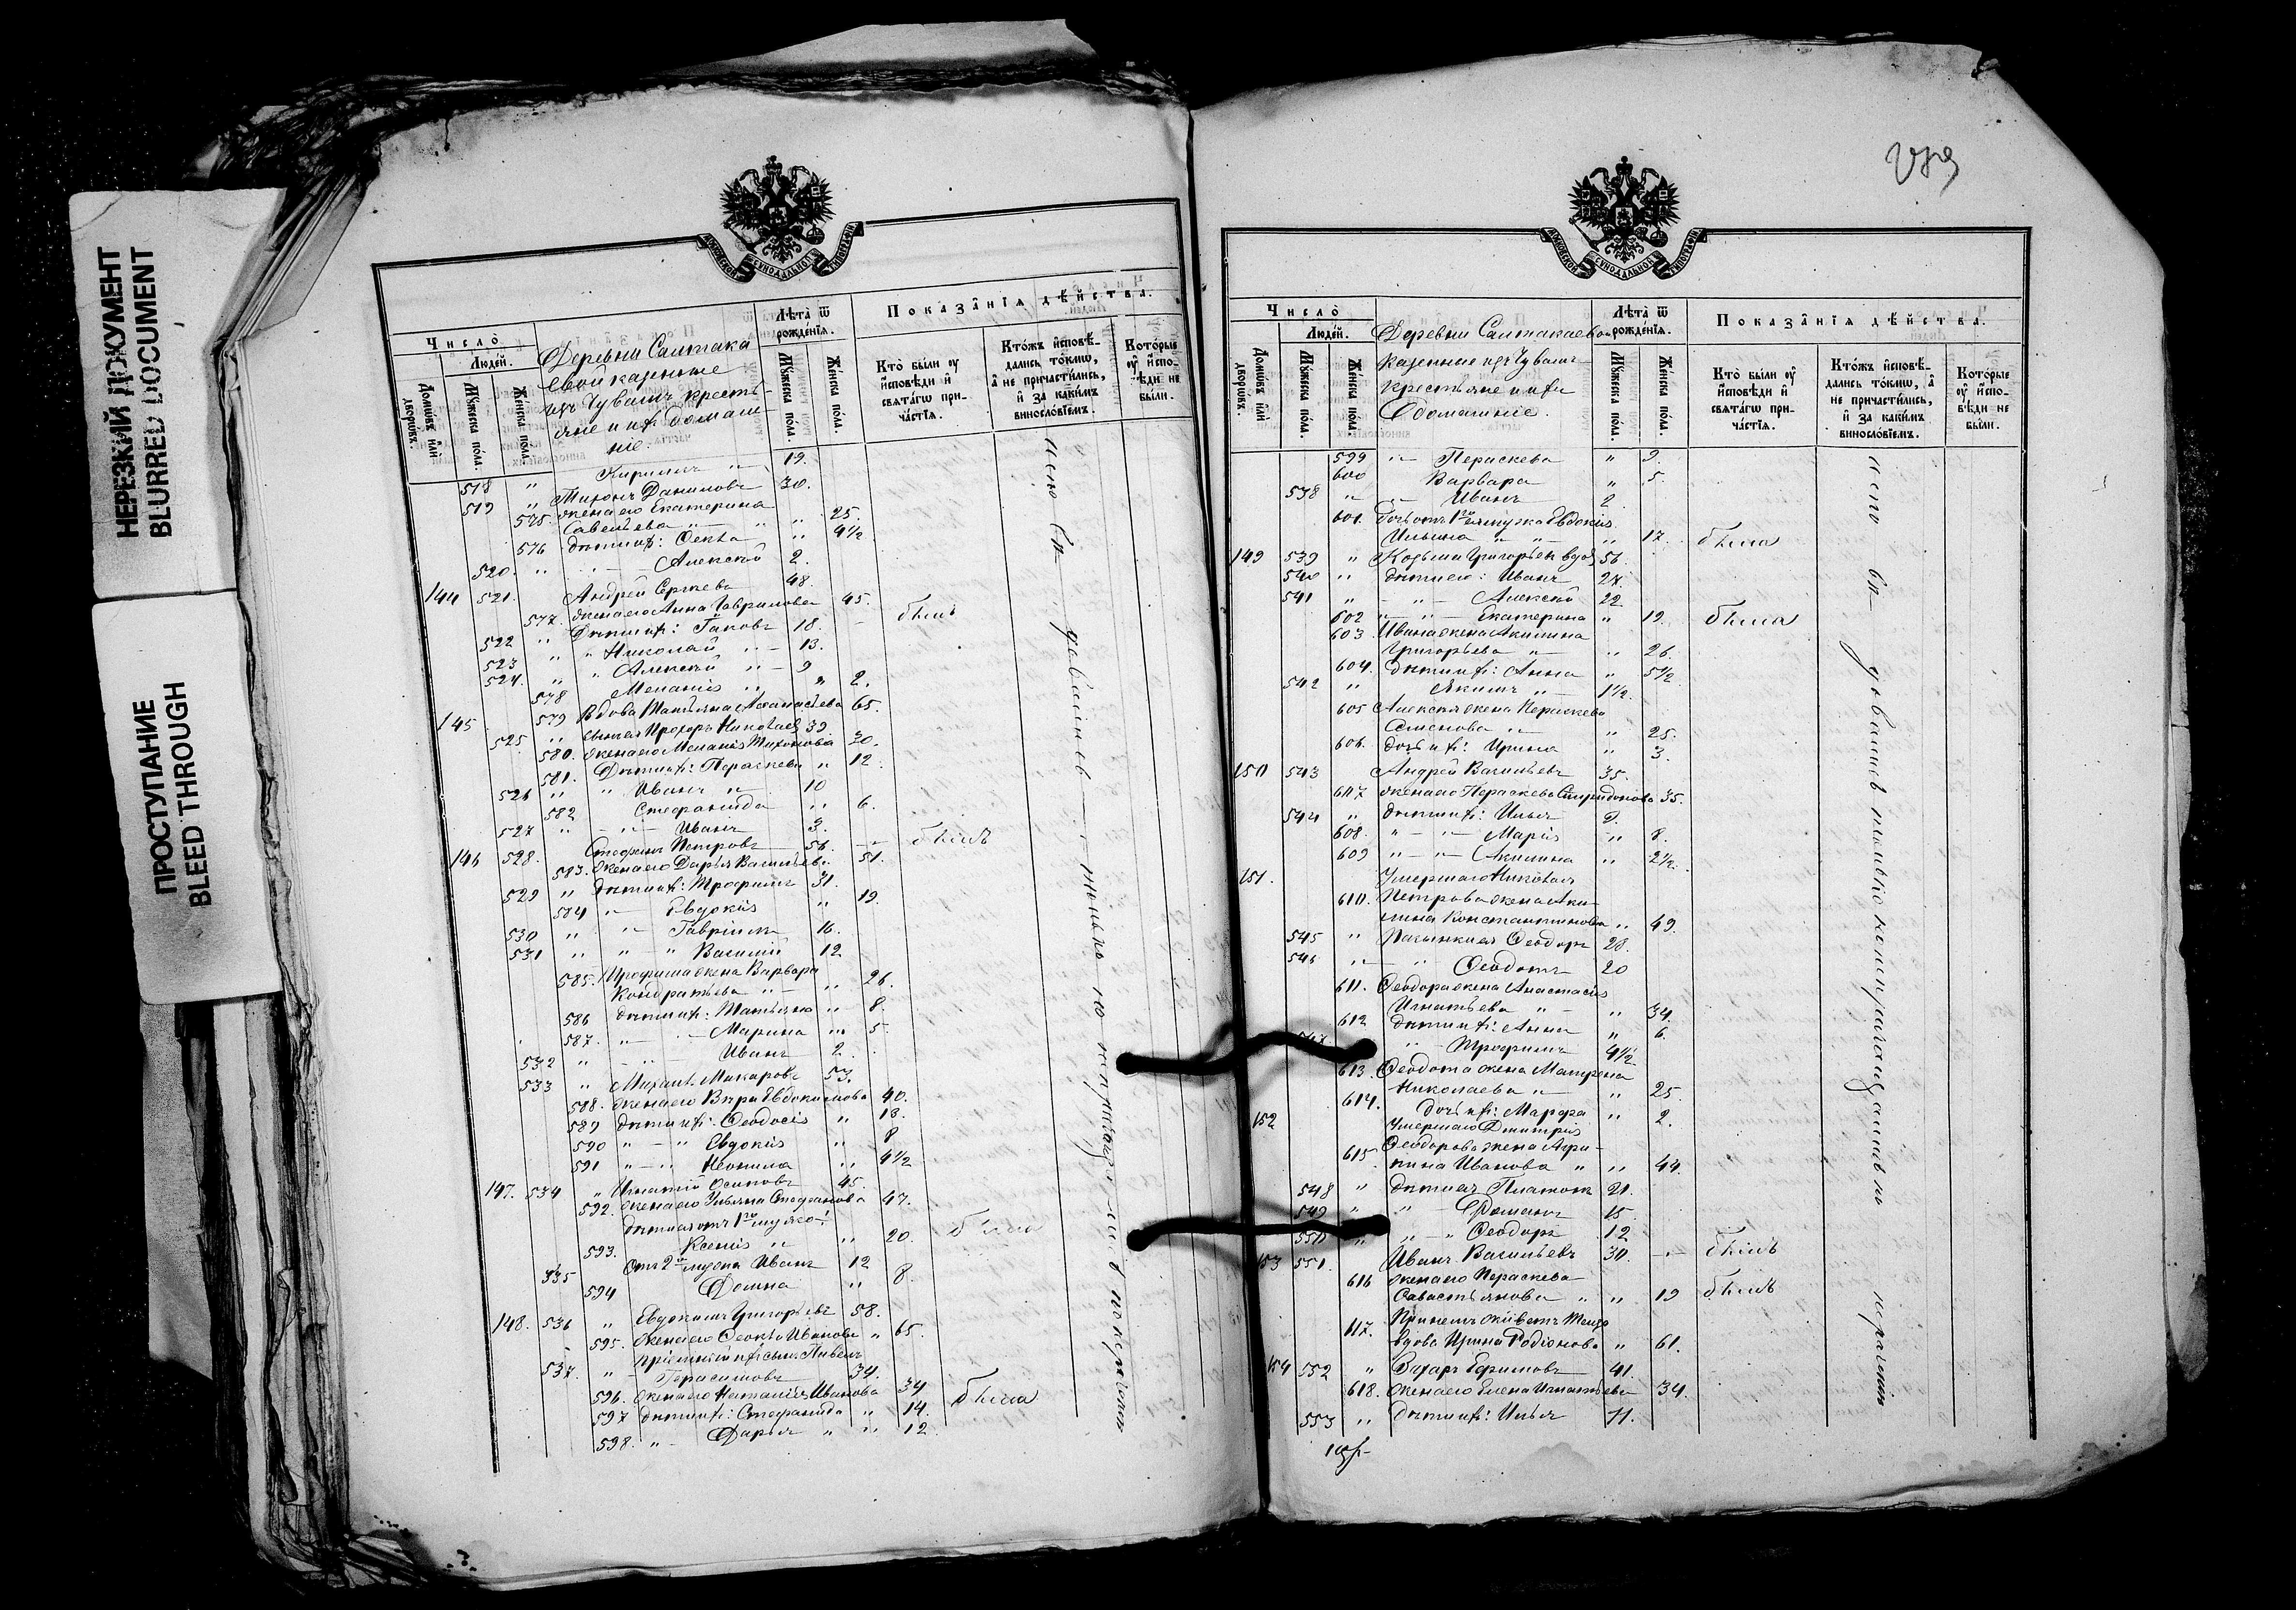 НЕРЕЗКИЙ ДОКУМЕНТ
BLURRED DOCUMENT
ПРОСТУПАНИЕ
BLEED THROUGH
Число̀
Люде́й.
Домѡвъ и҆лѝ дворѡвъ.
Мꙋ́жеска по́ла.
Же́нска по́ла.
Деревни Салтака
евой казенные
изъ Чувашъ кресть-
яне и ихъ домаш-
ніе.
Лѣта̀ ѿ рожде́нїѧ.
Мꙋ́жеска по́ла.
Же́нска по́ла.
Показа̂нїѧ дѣ́йства.
Кто̀ бы́ли ᲂу҆ и҆сповѣ́ди и҆ свѧта́гѡ прича́стїѧ.
Кто́жъ и҆сповѣ́дались то́кмѡ, а҆ не причасти́лись, и҆ за каки́мъ винослѡ́вїемъ.
Кото́рые ᲂу҆ и҆сповѣ́ди не бы́ли.
518 " Кирилъ " 19.
519 " Тихонъ Даниловъ 30.
575. жена его Екатерина
Савельева " " 25.
576 дѣти ихъ: Ѳекла " 4½
520. " Алексѣй 2.
144 521. Андрей Сергѣевъ 48.
577. жена его Анна Гаврилова 45.
522 " Дѣти ихъ: Іаковъ 18. былъ
523 " " Николай " 13.
524. " " Алексѣй " 9
578 Меланія " " 2.
145 579 Вдова Татьяна Аѳанасьева 65.
525 " сынъ ея Прохоръ Николаевъ 39
580. жена его Меланія Тихонова 30.
581. Дѣти ихъ: Параскева " 12.
526 " " Иванъ " 10
582 Стефанида " 6.
527 " " Иванъ 3.
146 528. Стефанъ Петровъ 56. былъ
583. жена его Дарья Васильева 51.
529 " дѣти ихъ: Трофимъ 31.
584 " Евдокія " 19.
530 " " Гавріилъ 16.
531 " " " Василій 12
585. Трофима жена Варвара
Кондратьева " " 26.
586 дѣти ихъ: Татьяна " 8.
587. " Марина " 5.
532 " Иванъ 2.
533 " Михаилъ Макаровъ 53.
588. жена его Вѣра Евдокимова 40.
589 дѣти ихъ: Ѳеодосія " 18.
590 " " Евдокія " 8
591 " " Неонила " 4½
147. 534 " Игнатій Осиповъ 45.
592. жена его Ульяна Стефанова 47.
дѣти ея отъ 1го мужа:
593. Ксенія " " 20. была
535 Отъ 2го мужа Иванъ 12
594 Домна " 8.
148. 536 " Евдокимъ Григорьевъ 58.
595. жена его Ѳекла Иванова " 65.
пріемный ихъ сынъ Павелъ
537. " Герасимовъ 34.
596. жена его Наталія Иванова 34 была
597 дѣти ихъ: Стефанида " 14.
598. " Дарья " " 12
Число̀
Люде́й.
Домѡвъ и҆лѝ дворѡвъ.
Мꙋ́жеска по́ла.
Же́нска по́ла.
Деревни Салтакаево
казенные изъ Чувашъ
крестьяне и ихъ
домашніе.
Лѣта̀ ѿ рожде́нїѧ.
Мꙋ́жеска по́ла.
Же́нска по́ла.
Показа̂нїѧ дѣ́йства.
Кто̀ бы́ли ᲂу҆ и҆сповѣ́ди и҆ свѧта́гѡ прича́стїѧ.
Кто́жъ и҆сповѣ́дались то́кмѡ, а҆ не причасти́лись, и҆ за каки́мъ винослѡ́вїемъ.
Кото́рые ᲂу҆ и҆сповѣ́ди не бы́ли.
599 " Параскева " 9.
600 Варвара " 5.
538 " " Иванъ 2.
601. Дочь отъ 1го ея мужа Евдокія
Ильина " " 17. была
149 539 " Козьма Григорьевъ вдов 56.
540 " дѣти его: Иванъ 27.
541 " " Алексѣй 22.
602 " " Екатерина " 19. была
603 Ивана жена Акилина
Григорьева " " 26.
604. дѣти ихъ: Анна " 5½
542 " Якимъ " 1½
605 Алексѣя жена Параскева
Семенова " " 25.
606. дочь ихъ: Ирина " 3.
150 543 Андрей Васильевъ 35.
607 жена его Параскева Спиридонова 35.
544 " дѣти ихъ: Илья 9.
608. " " Марія " 8.
609 " " Акилина " 2½
151. Умершаго Николая
610. Петрова жена Аки-
лина Константинова " 49.
545 " Пасынки ея Ѳеодоръ 28.
546 " " Ѳеодотъ 20
611. Ѳеодора жена Анастасія
Игнатьева " " 34.
612 дѣти ихъ: Анна " 6.
547 " Трофимъ 4½
613. Ѳеодота жена Матрена
Николаева " " 25.
614. дочь ихъ: Марфа " 2.
152 Умершаго Дмитрія
615 Ѳеодорова жена Агри-
пина Иванова " " 44.
548 " дѣти ея Платонъ 21.
549 " " Романъ 15.
550 " " " Ѳеодоръ 12
153 551. Иванъ Васильевъ 30. былъ
616 жена его Параскева
Савастьянова " " 19 былъ
617. вдова Ирина Родіонова " 61.
154 552 " Захаръ Ефимовъ 41.
618. жена его Елена Игнатьева 34.
553 " дѣти ихъ: Илья 11.